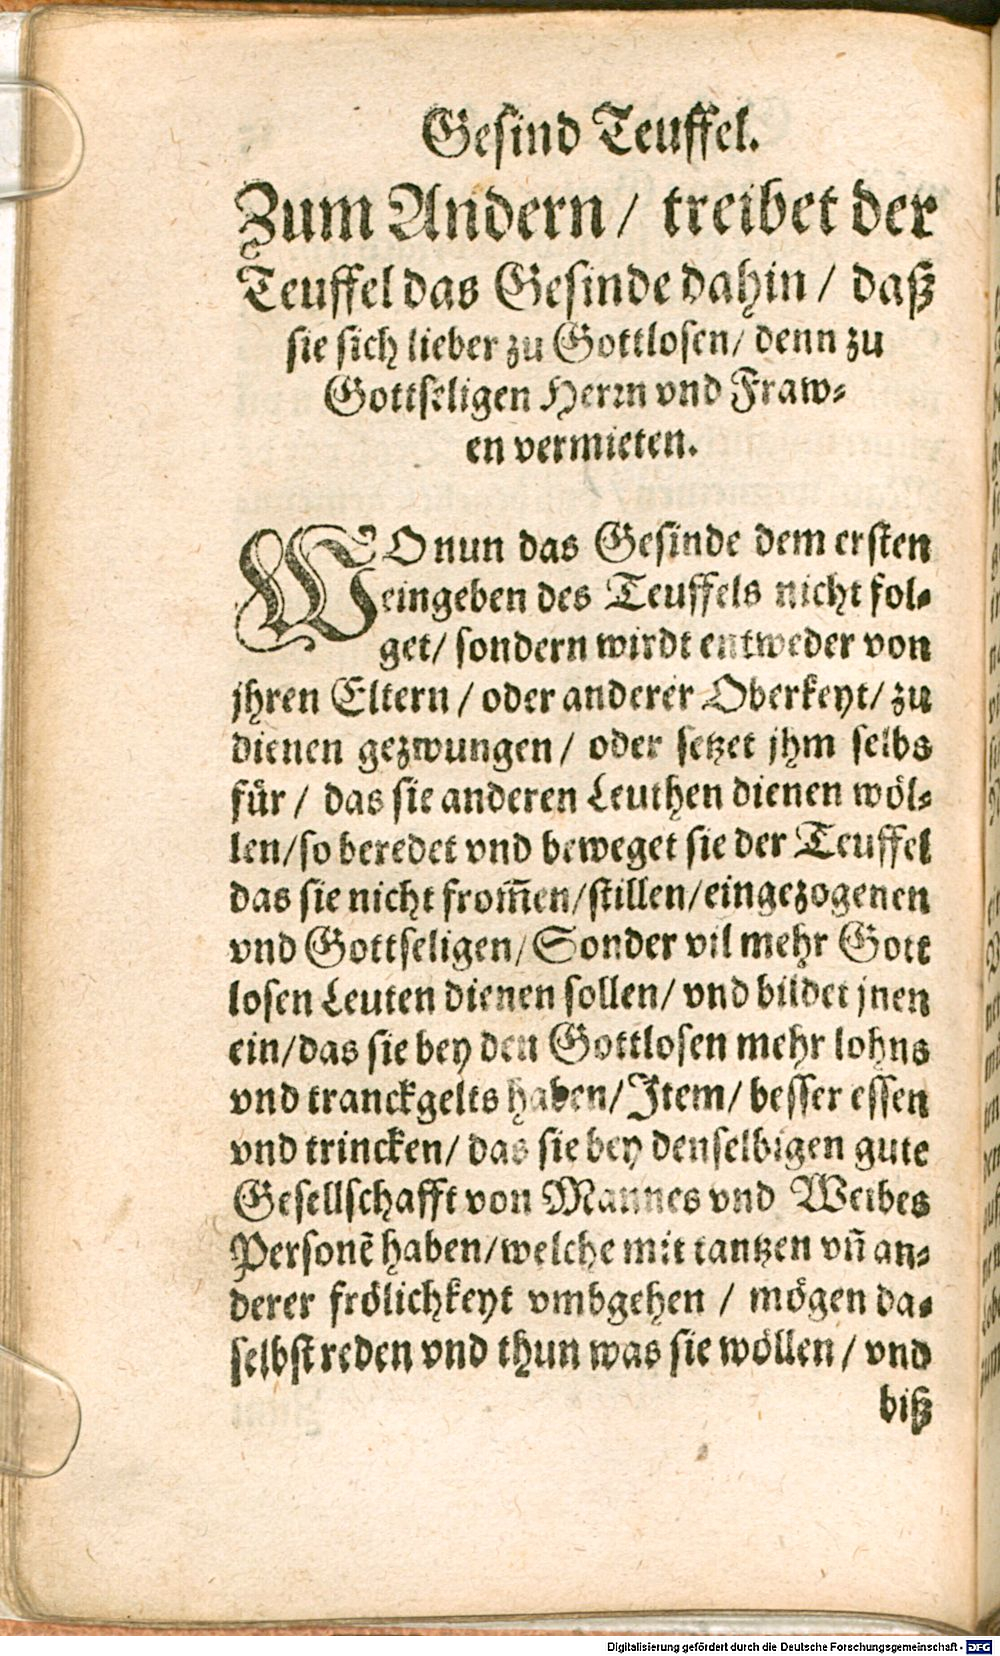 Gesind Teuffel.
Zum Andern / treibet der
Teuffel das Gesinde dahin / daß
sie sich lieber zu Gottlosen / denn zu
Gottseligen Herrn vnd Fraw-
en vermieten.
WO nun das Gesinde dem ersten
eingeben des Teuffels nicht fol-
get / sondern wirdt entweder von
jhren Eltern / oder anderer Oberkeyt / zu
dienen gezwungen / oder setzet jhm selbs
für / das sie anderen Leuthen dienen wöl-
len / so beredet vnd beweget sie der Teuffel
das sie nicht from̃en / stillen / eingezogenen
vnd Gottseligen / Sonder vil mehr Gott
losen Leuten dienen sollen / vnd bildet jnen
ein / das sie bey den Gottlosen mehr lohns
vnd tranckgelts haben / Item / besser essen
vnd trincken / das sie bey denselbigen gute
Gesellschafft von Mannes vnd Weibes
Personẽ haben / welche mit tantzen vñ an-
derer frölichkeyt vmbgehen / mögen da-
selbst reden vnd thun was sie wöllen / vnd
biß
Digitalisierung gefördert durch die Deutsche Forschungsgemeinschaft - DFG